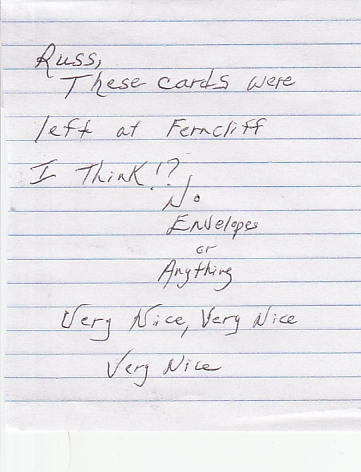 Russ,
These cards were
left at Ferncliff
I Think!?
No
Envelopes
or
Anything
Very Nice, Very Nice
Very Nice